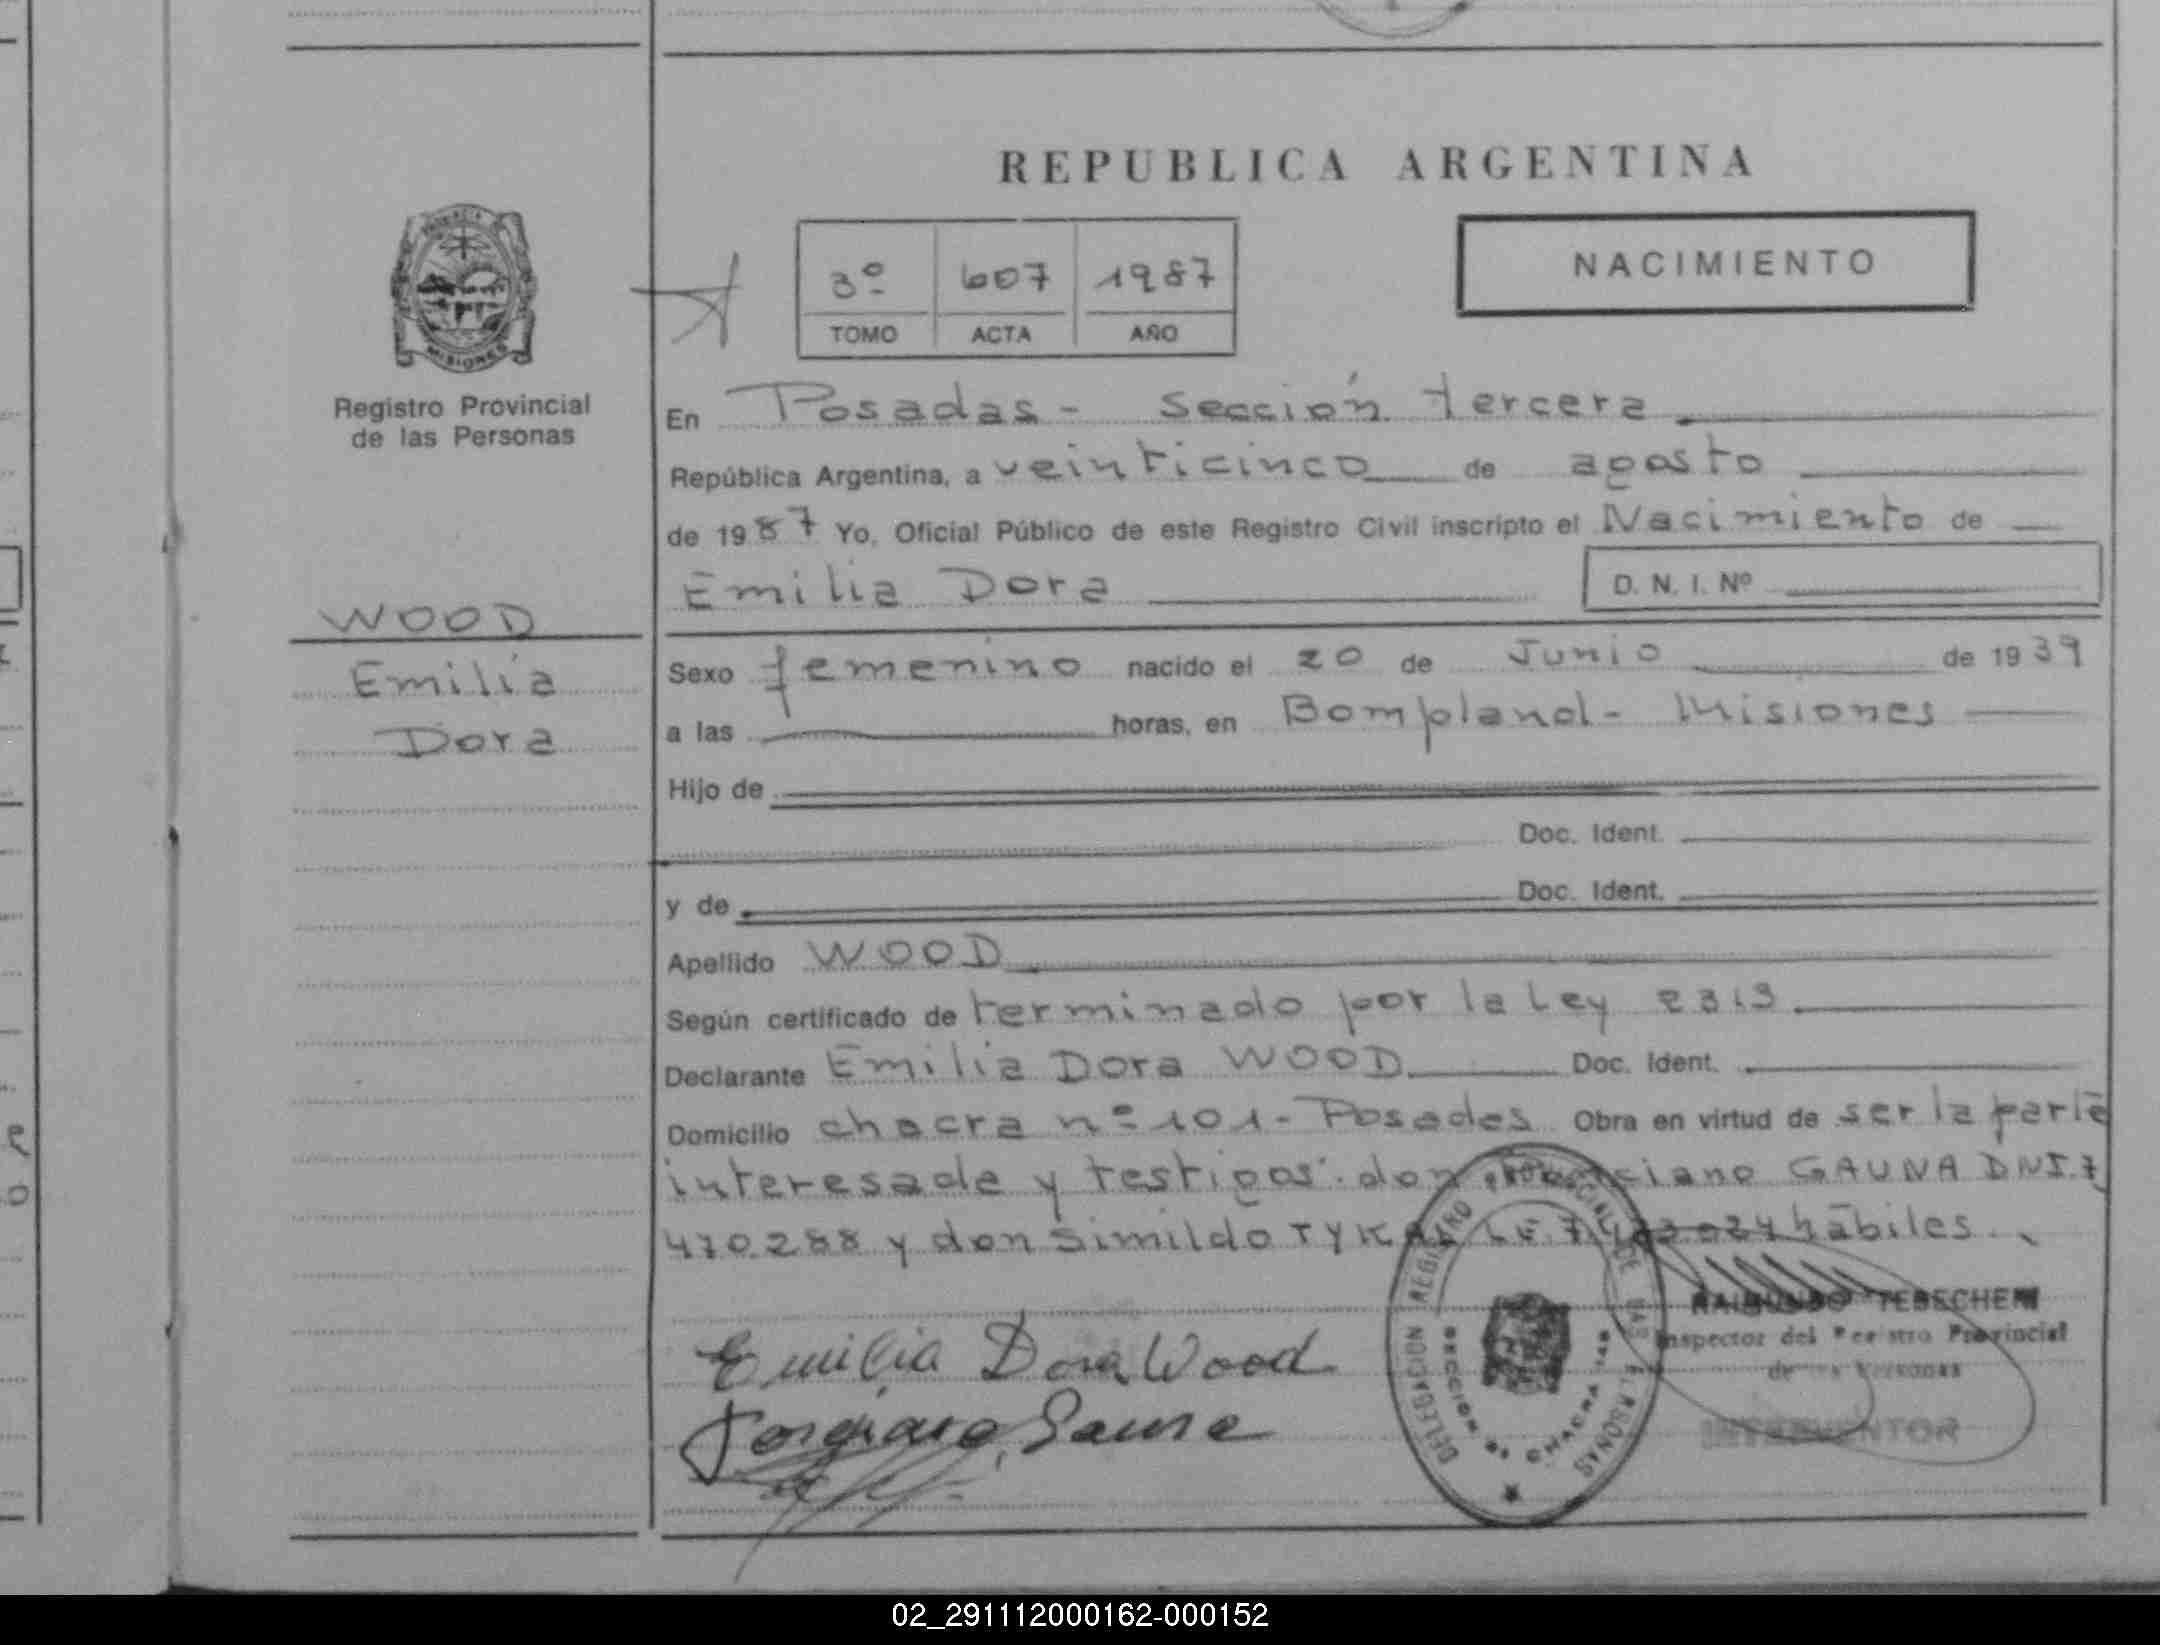 REPUBLICA ARGENTINA
NACIMIENTO
3º 607 1987
TOMO ACTA AÑO
PROVINCIA
MISIONES
Registro Provincial
de las Personas
WOOD
Emilia
Dora
En Posadas - Sección tercera
República Argentina, a veinticinco de agosto
de 1987 Yo, Oficial Público de este Registro Civil inscripto el Nacimiento de
Emilia Dora D. N. I. Nº
Sexo femenino nacido el 20 de Junio de 1939
a las horas, en Bompland - Misiones
Hijo de
Doc. Ident.
y de Doc. Ident.
Apellido WOOD
Según certificado de terminado por la Ley
Declarante Emilia Dora WOOD Doc. Ident.
Domicilio chacra nº 101 - Posadas Obra en virtud de ser la parte
interesada y testigos: don GAUNA DNI. 7
470.288 y don Simildo hábiles.
Emilia Dora Wood
DELEGACION REGISTRO PROVINCIAL DE LAS PERSONAS
SECCION 3ª CHACRA
RAIMUNDO TEBSCHERI
Inspector del Registro Provincial
de las Personas
INTERVENTOR
02_291112000162-000152